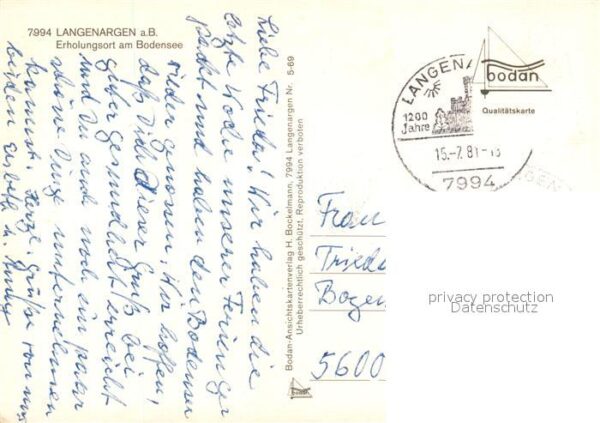 7994 LANGENARGEN a.B.
Erholungsort am Bodensee
Liebe Frieda! Wir haben die
letzte Woche unserer Ferien ge
packt und haben den Bodensee
wieder genossen. Wir hoffen,
daß Dich dieser Gruß bei
guter Gesundheit erreicht
und Du auch noch ein paar
schöne Dinge unternehmen
kannst. Herzl. Grüße von uns
beiden
Bodan-Ansichtskartenverlag H. Bockelmann, 7994 Langenargen Nr. 5-69
Urheberrechtlich geschützt. Reproduktion verboten
bodan
LANGENA
1200
Jahre
15.-7.81.-13
7994
bodan
Qualitätskarte
Frau
Frieda
Bogen
5600
privacy protection
Datenschutz